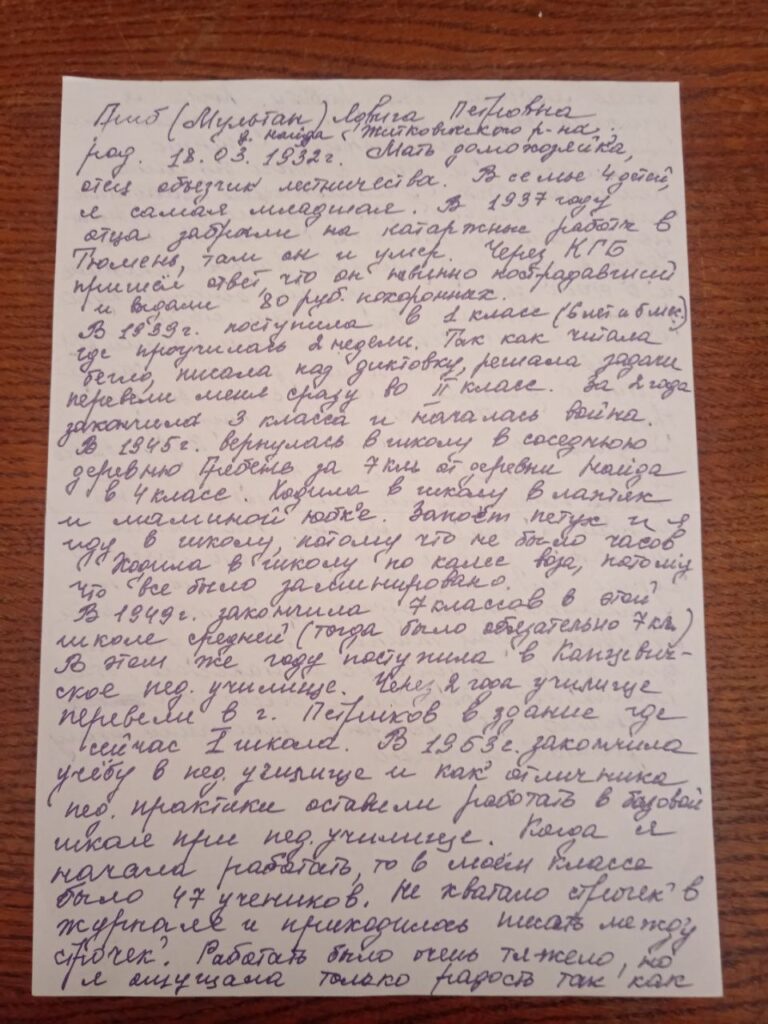 (Мультан) Ядвига Петровна
д. Найда Житковичского р-на.
род. 18.03.1932г. Мать домохозяйка,
отец объезчик лестничества. В семье 4 детей,
я самая младшая. В 1937 году
отца забрали на катаржные работы в
Тюмень, там он и умер. Через КГБ
пришёл ответ, что он невинно пострадавший
и выдали 80 руб. похоронных.
В 1939г. поступила в 1 класс (6 лет и 6 мес.)
где проучилась 2 недели. Так как читала
бегло, писала под диктовку, решала задачи
перевели меня сразу во II класс. За 2 года
закончила 3 класса и началась война.
В 1945г. вернулась в школу в соседнюю
деревню за 7 км от деревни Найда
в 4 класс. Ходила в школу в лаптях
и маминой юбке. Запоёт петух и я
иду в школу, потому что не было часов
Ходила в школу по калес воза, потому
что все было заминировано.
В 1949г. закончила 7 классов в этой
школе средней (тогда было обязательно 7 кл.)
В этом же году поступила в Копцевич-
ское пед. училище. Через 2 года училище
перевели в г. Петриков в здание где
сейчас I школа. В 1953г. закончила
учёбу в пед. училище и как отличника
пед. практики оставили работать в базовой
школе при пед. училище. Когда я
начала работать, то в моём классе
было 47 учеников. Не хватало строчек в
журнале и приходилось писать между
строчек. Работать было очень тяжело, но
я ощущала только радость так как